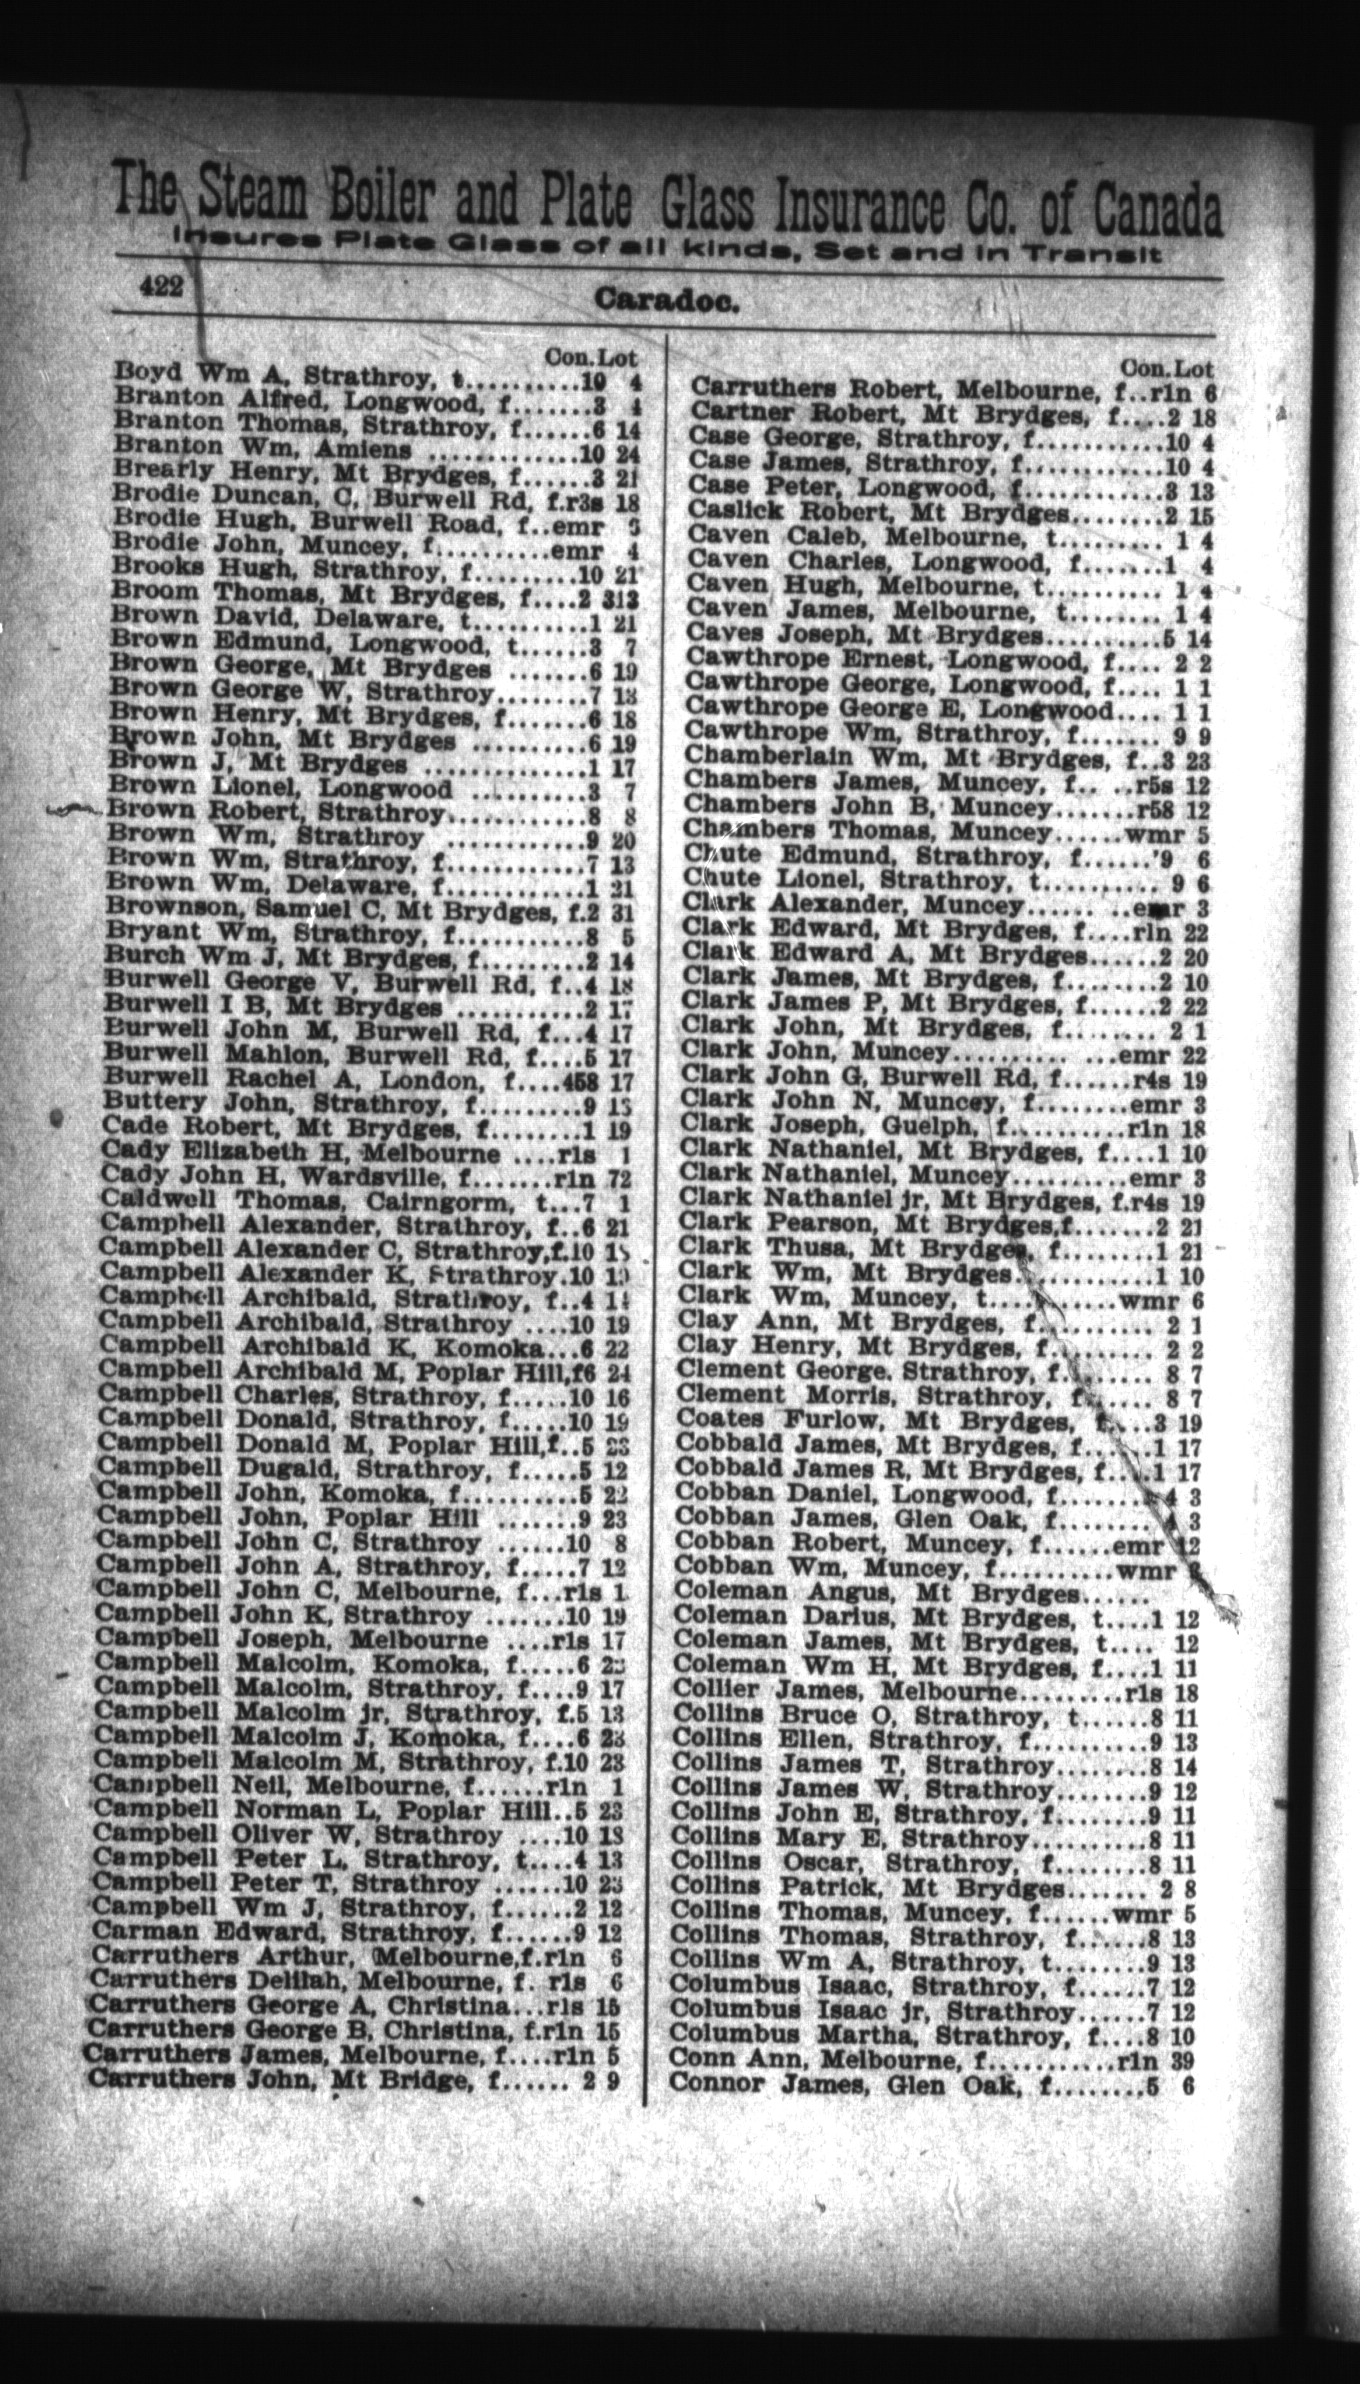 The Steam Boiler and Plate Glass Insurance Co. of Canada
Insures Plate Glass of all kinds, Set and in Transit
422
Caradoc.
Con. Lot
Boyd Wm A, Strathroy, t..........10 4
Branton Alfred, Longwood, f.......3 4
Branton Thomas, Strathroy, f......6 14
Branton Wm, Amiens .............10 24
Brearly Henry, Mt Brydges, f......3 21
Brodie Duncan, C, Burwell Rd, f.r3s 18
Brodie Hugh, Burwell Road, f..emr
Brodie John, Muncey, f..........emr 4
Brooks Hugh, Strathroy, f.........10 21
Broom Thomas, Mt Brydges, f....2 313
Brown David, Delaware, t..........1 21
Brown Edmund, Longwood, t......3 7
Brown George, Mt Brydges .......6 19
Brown George W, Strathroy........7 13
Brown Henry, Mt Brydges, f.......6 18
Brown John, Mt Brydges ..........6 19
Brown J, Mt Brydges ..............1 17
Brown Lionel, Longwood ..........3 7
Brown Robert, Strathroy............8 8
Brown Wm, Strathroy ............9 20
Brown Wm, Strathroy, f............7 13
Brown Wm, Delaware, f............1 21
Brownson, Samuel C, Mt Brydges, f.2 31
Bryant Wm, Strathroy, f...........8 5
Burch Wm J, Mt Brydges, f.........2 14
Burwell George V, Burwell Rd, f..4 18
Burwell I B, Mt Brydges ...........2 17
Burwell John M, Burwell Rd, f...4 17
Burwell Mahlon, Burwell Rd, f....5 17
Burwell Rachel A, London, f....458 17
Buttery John, Strathroy, f.........9
Cade Robert, Mt Brydges, f........1 19
Cady Elizabeth H, Melbourne ....r1s 1
Cady John H, Wardsville, f.......r1n 72
Caldwell Thomas, Cairngorm, t...7 1
Campbell Alexander, Strathroy, f..6 21
Campbell Alexander C, Strathroy,f.10
Campbell Alexander K, Strathroy.10
Campbell Archibald, Strathroy, f..4
Campbell Archibald, Strathroy ....10 19
Campbell Archibald K, Komoka...6 22
Campbell Archibald M, Poplar Hill,f6 24
Campbell Charles, Strathroy, f.....10 16
Campbell Donald, Strathroy, f.....10 19
Campbell Donald M, Poplar Hill,f..5
Campbell Dugald, Strathroy, f.....5 12
Campbell John, Komoka, f..........5
Campbell John, Poplar Hill .......9 23
Campbell John C, Strathroy ......10 8
Campbell John A, Strathroy, f.....7 12
Campbell John C, Melbourne, f...r1s 1
Campbell John K, Strathroy .......10 19
Campbell Joseph, Melbourne ....r1s 17
Campbell Malcolm, Komoka, f.....6
Campbell Malcolm, Strathroy, f....9 17
Campbell Malcolm jr, Strathroy, f.5 13
Campbell Malcolm J, Komoka, f....6 23
Campbell Malcolm M, Strathroy, f.10 23
Campbell Neil, Melbourne, f......r1n 1
Campbell Norman L, Poplar Hill..5 23
Campbell Oliver W, Strathroy ....10 13
Campbell Peter L, Strathroy, t....4 13
Campbell Peter T, Strathroy ......10 23
Campbell Wm J, Strathroy, f......2 12
Carman Edward, Strathroy, f......9 12
Carruthers Arthur, Melbourne,f.r1n 6
Carruthers Delilah, Melbourne, f. r1s 6
Carruthers George A, Christina...r1s 15
Carruthers George B, Christina, f.r1n 15
Carruthers James, Melbourne, f....r1n 5
Carruthers John, Mt Bridge, f...... 2 9
Con. Lot
Carruthers Robert, Melbourne, f..r1n 6
Cartner Robert, Mt Brydges, f....2 18
Case George, Strathroy, f...........10 4
Case James, Strathroy, f............10 4
Case Peter, Longwood, f............3 13
Caslick Robert, Mt Brydges........2 15
Caven Caleb, Melbourne, t......... 1 4
Caven Charles, Longwood, f.......1 4
Caven Hugh, Melbourne, t.......... 1 4
Caven James, Melbourne, t........ 1 4
Caves Joseph, Mt Brydges..........5 14
Cawthrope Ernest, Longwood, f.... 2 2
Cawthrope George, Longwood, f.... 1 1
Cawthrope George E, Longwood.... 1 1
Cawthrope Wm, Strathroy, f....... 9 9
Chamberlain Wm, Mt Brydges, f..3 23
Chambers James, Muncey, f.. ..r5s 12
Chambers John B, Muncey.......r58 12
Chambers Thomas, Muncey......wmr 5
Chute Edmund, Strathroy, f......9 6
Chute Lionel, Strathroy, t.......... 9 6
Clark Alexander, Muncey...... ..emr 3
Clark Edward, Mt Brydges, f....r1n 22
Clark Edward A, Mt Brydges......2 20
Clark James, Mt Brydges, f........2 10
Clark James P, Mt Brydges, f......2 22
Clark John, Mt Brydges, f........ 2 1
Clark John, Muncey.......... ...emr 22
Clark John G, Burwell Rd, f......r4s 19
Clark John N, Muncey, f........emr 3
Clark Joseph, Guelph, f..........r1n 18
Clark Nathaniel, Mt Brydges, f....1 10
Clark Nathaniel, Muncey..........emr 3
Clark Nathaniel jr, Mt Brydges, f.r4s 19
Clark Pearson, Mt Brydges,f.......2 21
Clark Thusa, Mt Brydges, f........1 21
Clark Wm, Mt Brydges............1 10
Clark Wm, Muncey, t..........wmr 6
Clay Ann, Mt Brydges, f.......... 2 1
Clay Henry, Mt Brydges, f......... 2 2
Clement George. Strathroy, f........ 8 7
Clement Morris, Strathroy, f...... 8 7
Coates Furlow, Mt Brydges, f....3 19
Cobbald James, Mt Brydges, f......1 17
Cobbald James R, Mt Brydges, f....1 17
Cobban Daniel, Longwood, f........4 3
Cobban James, Glen Oak, f........ 4 3
Cobban Robert, Muncey, f......emr 12
Cobban Wm, Muncey, f..........wmr
Coleman Angus, Mt Brydges......
Coleman Darius, Mt Brydges, t....1 12
Coleman James, Mt Brydges, t.... 12
Coleman Wm H, Mt Brydges, f....1 11
Collier James, Melbourne.........r1s 18
Collins Bruce O, Strathroy, t......8 11
Collins Ellen, Strathroy, f..........9 13
Collins James T, Strathroy........8 14
Collins James W, Strathroy........9 12
Collins John E, Strathroy, f........9 11
Collins Mary E, Strathroy..........8 11
Collins Oscar, Strathroy, f........8 11
Collins Patrick, Mt Brydges....... 2 8
Collins Thomas, Muncey, f......wmr 5
Collins Thomas, Strathroy, f......8 13
Collins Wm A, Strathroy, t........9 13
Columbus Isaac, Strathroy, f......7 12
Columbus Isaac jr, Strathroy......7 12
Columbus Martha, Strathroy, f....8 10
Conn Ann, Melbourne, f...........r1n 39
Connor James, Glen Oak, f........5 6